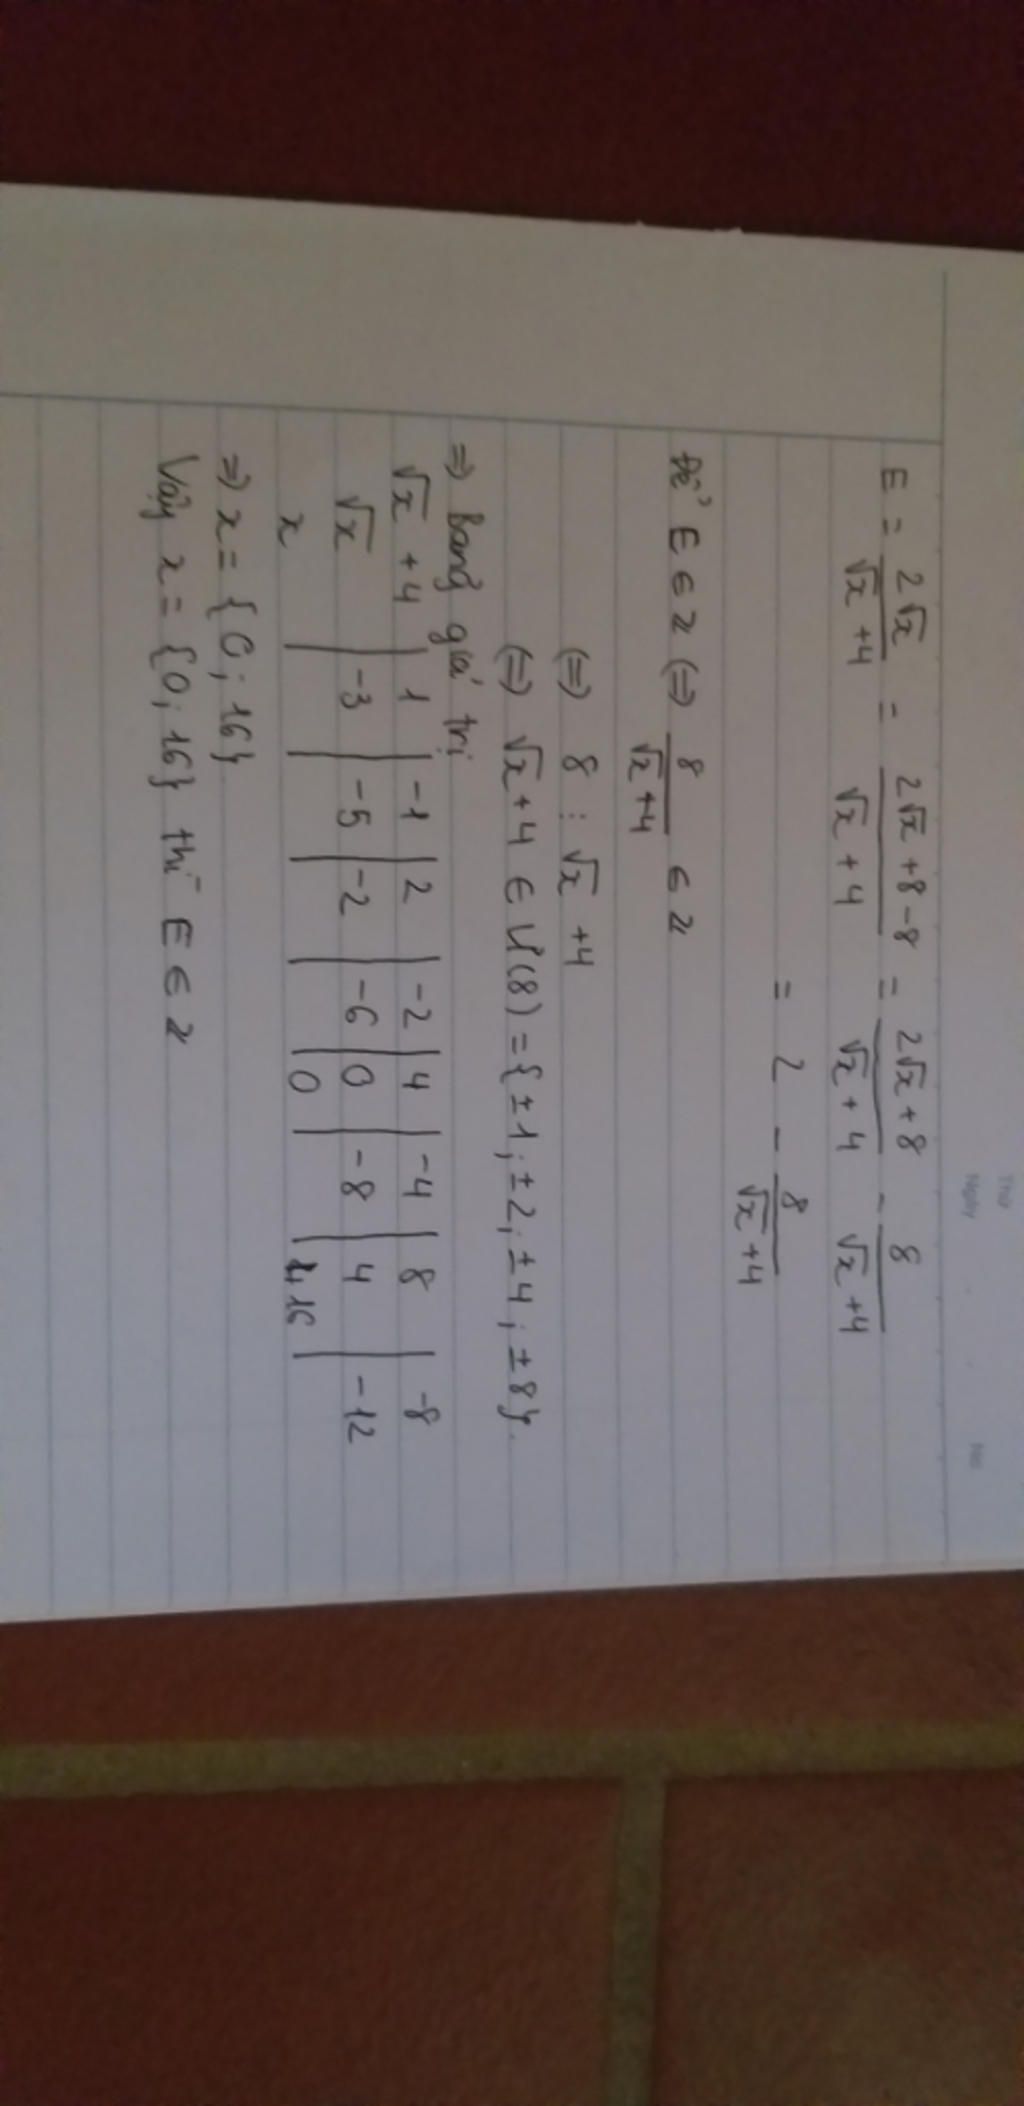 Thứ
Ngày No
E = 2√x / (√x + 4) = (2√x + 8 - 8) / (√x + 4) = (2√x + 8) / (√x + 4) - 8 / (√x + 4)
= 2 - 8 / (√x + 4)
Để E ∈ Z (=) 8 / (√x + 4) ∈ Z
(=) 8 ⋮ √x + 4
(=) √x + 4 ∈ Ư(8) = {±1; ±2; ±4; ±8}.
=) Bảng giá trị
√x + 4 | 1 | -1 | 2 | -2 | 4 | -4 | 8 | -8
√x | -3 | -5 | -2 | -6 | 0 | -8 | 4 | -12
x | | | | | 0 | | 16 |
=) x = {0; 16}
Vậy x = {0; 16} thì E ∈ Z